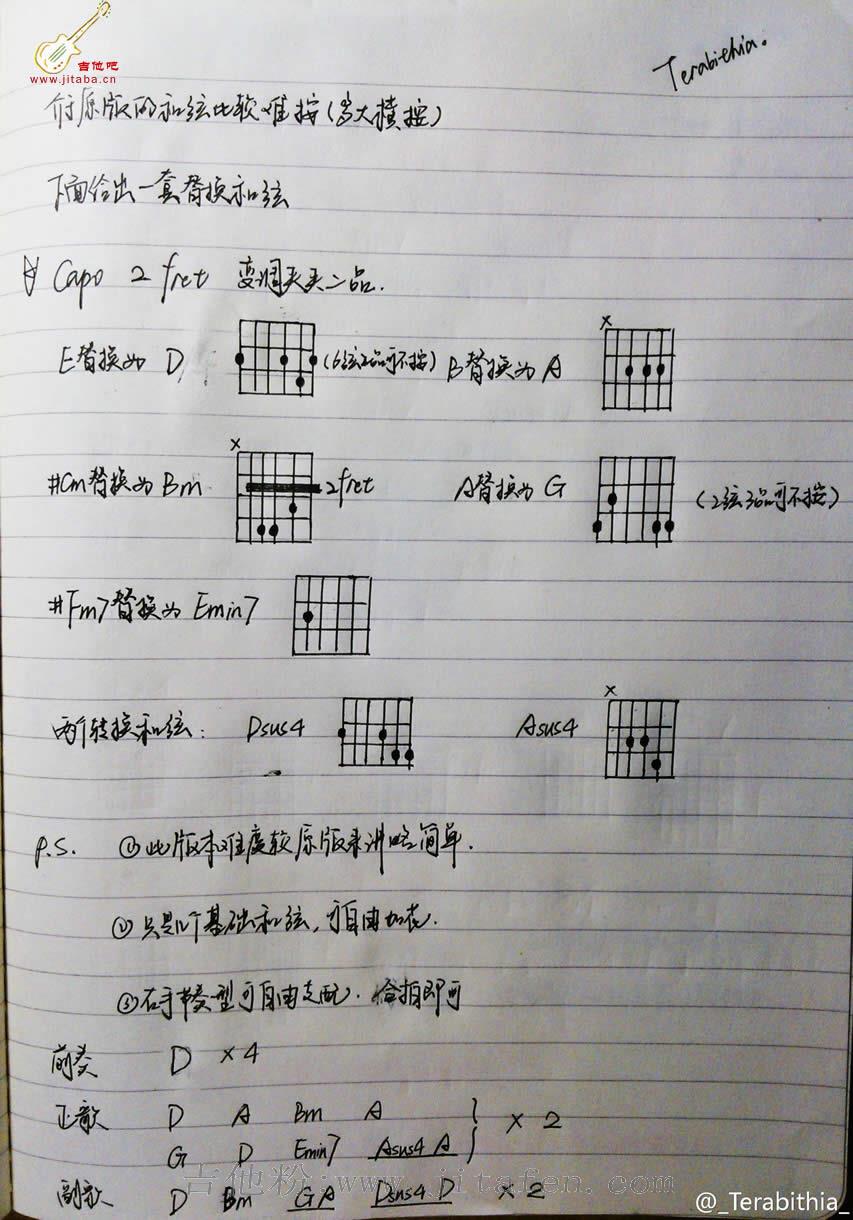 吉他吧
www.jitaba.cn
Terabithia.
介于原版的和弦比较难按(多大横按)
下面给出一套替换和弦
Capo 2 fret 变调夹夹二品.
E替换为 D (6弦2品可不按) B替换为 A
x
#Cm替换为 Bm 2fret A替换为 G (2弦3品可不按)
x
#Fm7替换为 Emin7
两个转换和弦: Dsus4 Asus4
x
P.S. ①此版本难度较原版来讲略简单.
②只是几个基础和弦,可自由加花.
③右手节奏型可自由支配. 合拍即可
前奏 D ×4
正歌 D A Bm A
G D Emin7 Asus4 A } × 2
副歌 D Bm G A Dsus4 D × 2
吉他粉:www.jitafen.com
@_Terabithia_